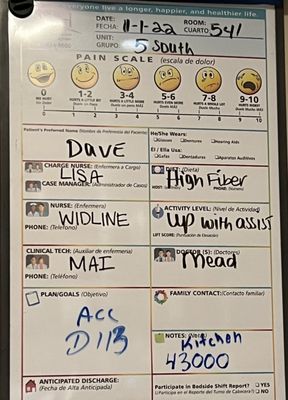 everyone live a longer, happier, and healthier life.
DATE:
FECHA: 11-1-22
ROOM:
CUARTO: 541
UNIT:
GRUPO: 5 South
PAIN SCALE (escala de dolor)
0 1-2 3-4 5-6 7-8 9-10
NO HURT HURTS A LITTLE BIT HURTS A LITTLE MORE HURTS EVEN MORE HURTS A WHOLE LOT HURTS WORST
0 1 2 3 4 5 6 7 8 9 10
Patient's Preferred Name (Nombre de Preferencia del Paciente)
Dave
He/She Wears:
Glasses Dentures Hearing Aids
El / Ella Usa:
Gafas Dentaduras Aparatos Auditivos
CHARGE NURSE: (Enfermera a Cargo)
LISA
CASE MANAGER: (Administrador de Casos)
DIET: (Dieta)
High Fiber
PHONE: (Número)
NURSE: (Enfermera)
WIDLINE
PHONE: (Teléfono)
ACTIVITY LEVEL: (Nivel de Actividad)
Up with assist
LIFT SCORE: (Puntuación de Elevación)
CLINICAL TECH: (Auxiliar de enfermería)
MAI
PHONE: (Teléfono)
DOCTOR(S): (Doctores)
Mead
PLAN/GOALS (Objetivo)
Acc
D113
FAMILY CONTACT: (Contacto familiar)
NOTES: (Notas)
Kitchen
43000
ANTICIPATED DISCHARGE:
(Fecha de Alta Anticipada)
Participate in Bedside Shift Report? YES
¿Participa en el Reporte del Turno de Cabecera? NO